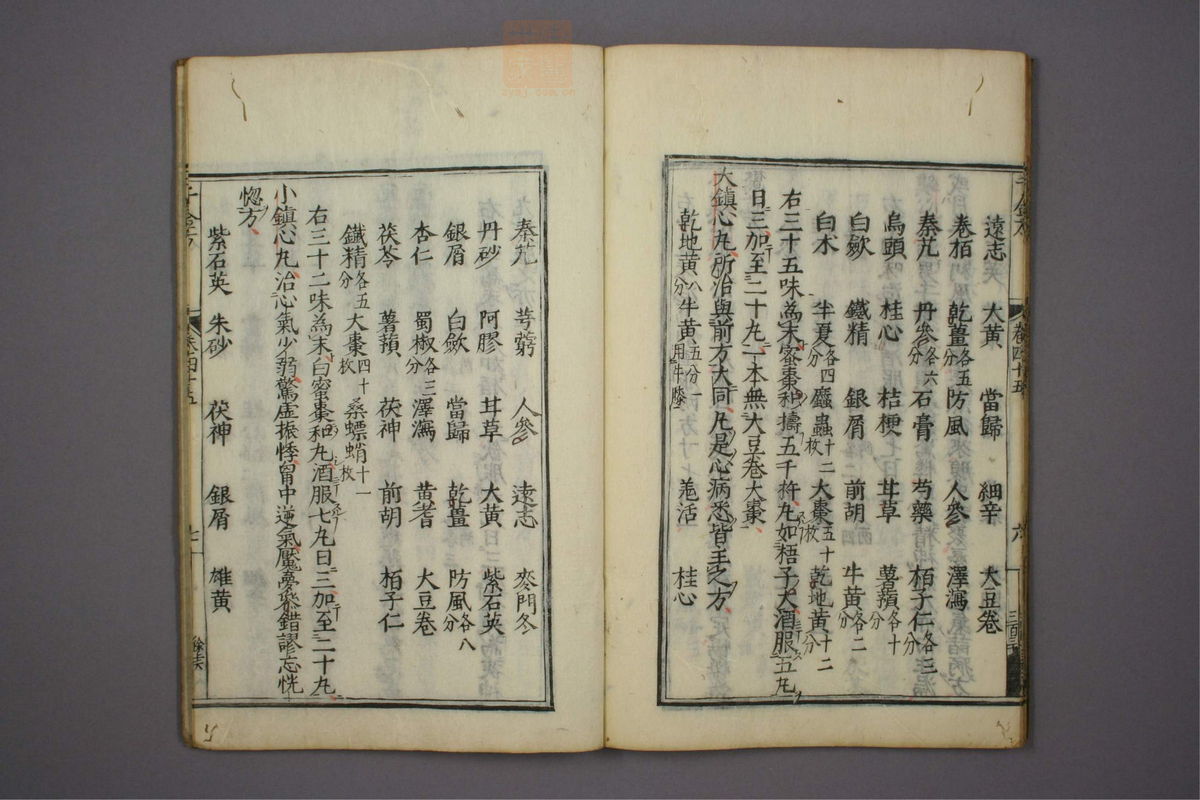 遠志 大黃 當歸 細辛 大豆卷
卷栢 乾薑各五分 防風 人參 澤瀉
秦艽 丹參各六分 石膏 芍藥 栢子仁各三分
烏頭 桂心 桔梗 甘草 薯蕷各十分
白歛 鐵精 銀屑 前胡 牛黃各二分
白朮 半夏各四分 䗪蟲十二枚 大棗五十枚 乾地黃十二分
右三十五味為末蜜棗和擣五千杵丸如梧子大酒服五丸
日三加至二十丸一本無大豆卷大棗
大鎮心丸所治與前方大同凡是心病悉皆主之方
乾地黃八分 牛黃五分一用牛膝 羗活 桂心
秦艽 芎藭 人參 遠志 麥門冬
丹砂 阿膠 甘草 大黃 紫石英
銀屑 白歛 當歸 乾薑 防風各八分
杏仁 蜀椒各三分 澤瀉 黃耆 大豆卷
茯苓 薯蕷 茯神 前胡 栢子仁
鐵精各五分 大棗四十枚 桑螵蛸十一枚
右三十二味為末白蜜棗和丸酒服七丸日三加至二十丸
小鎮心丸治心氣少弱驚虛振悸胷中逆氣魘夢參錯謬忘恍
惚方
紫石英 朱砂 茯神 銀屑 雄黃